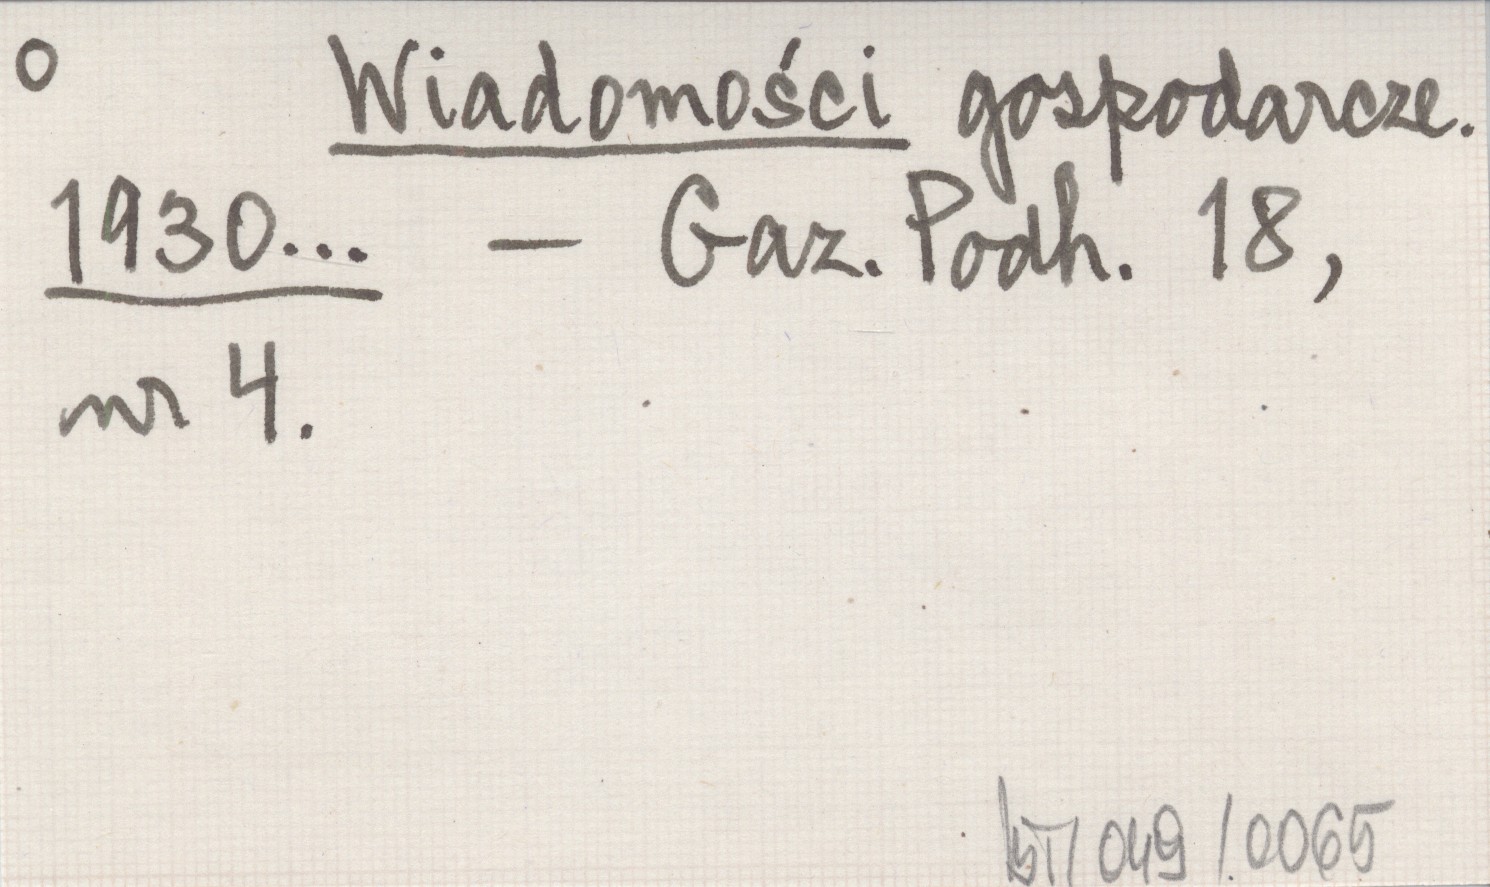 o Wiadomości gospodarcze.
1930... — Gaz. Podh. 18,
nr 4.
049/0065